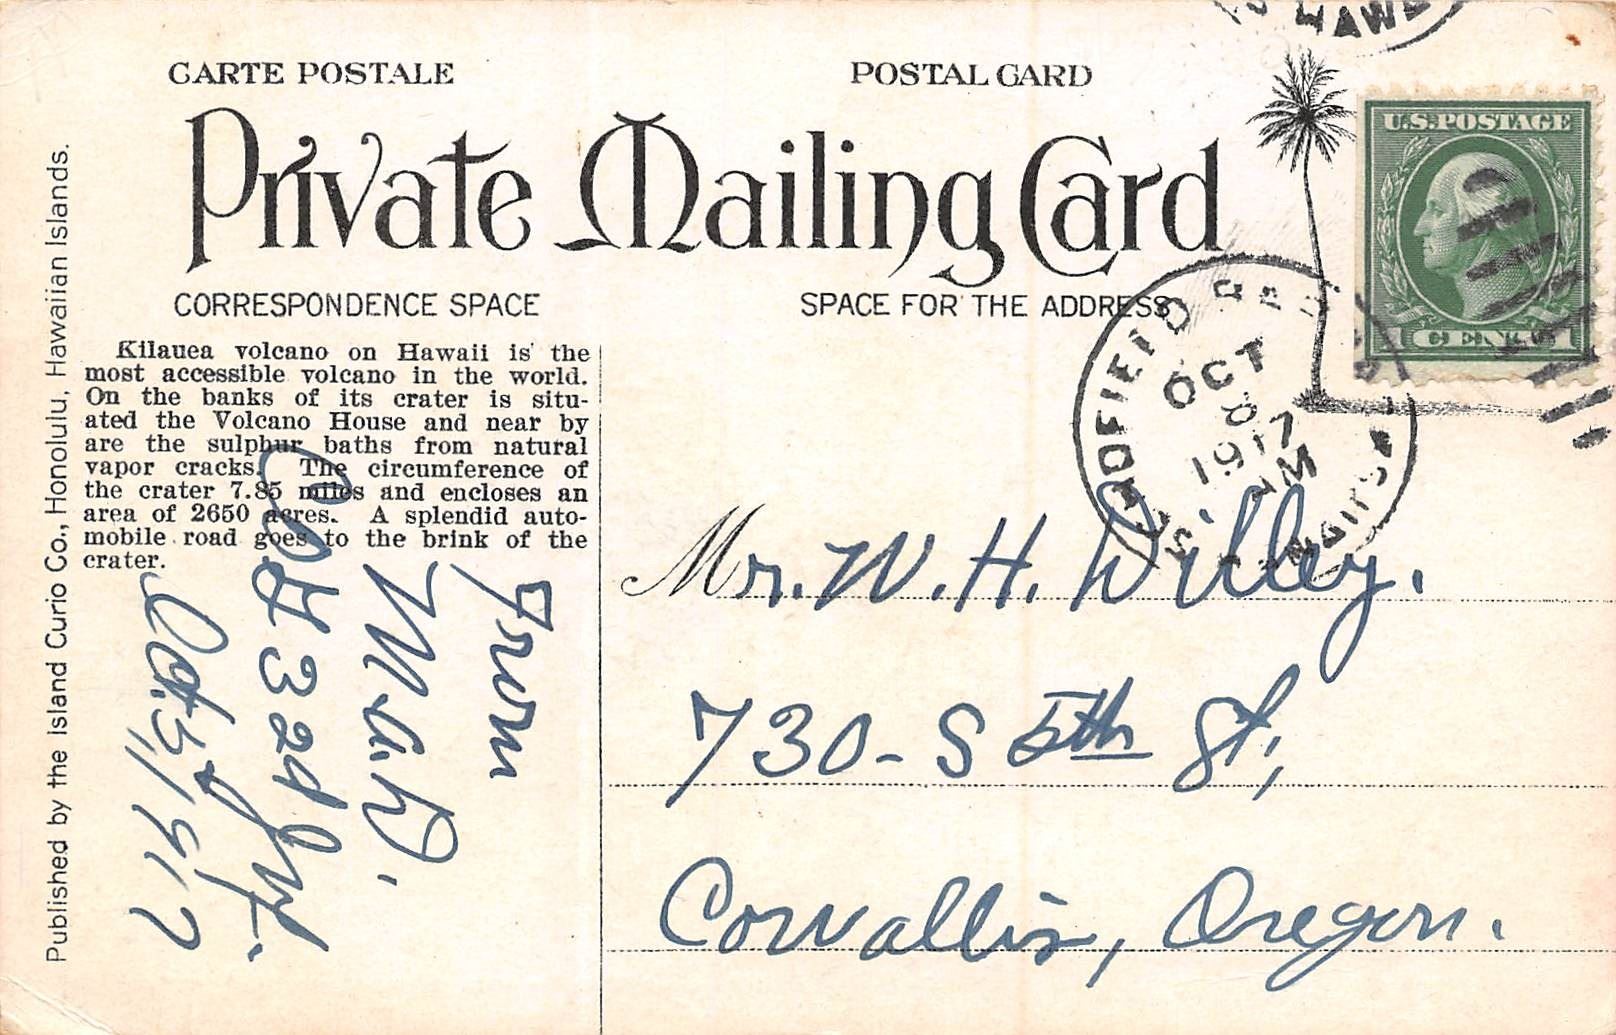 CARTE POSTALE
POSTAL CARD
Private Mailing Card
CORRESPONDENCE SPACE
SPACE FOR THE ADDRESS
Kilauea volcano on Hawaii is the
most accessible volcano in the world.
On the banks of its crater is situ-
ated the Volcano House and near by
are the sulphur baths from natural
vapor cracks. The circumference of
the crater 7.85 miles and encloses an
area of 2650 acres. A splendid auto-
mobile road goes to the brink of the
crater.
Published by the Island Curio Co., Honolulu, Hawaiian Islands.
From
Co. 32d Inf.
Oct. 5, 1917
U.S. POSTAGE
1 CENT 1
OCT
8
1917
AM
HAW
Mr. W. H. Dilley.
730 - S 5th St,
Corvallis, Oregon.